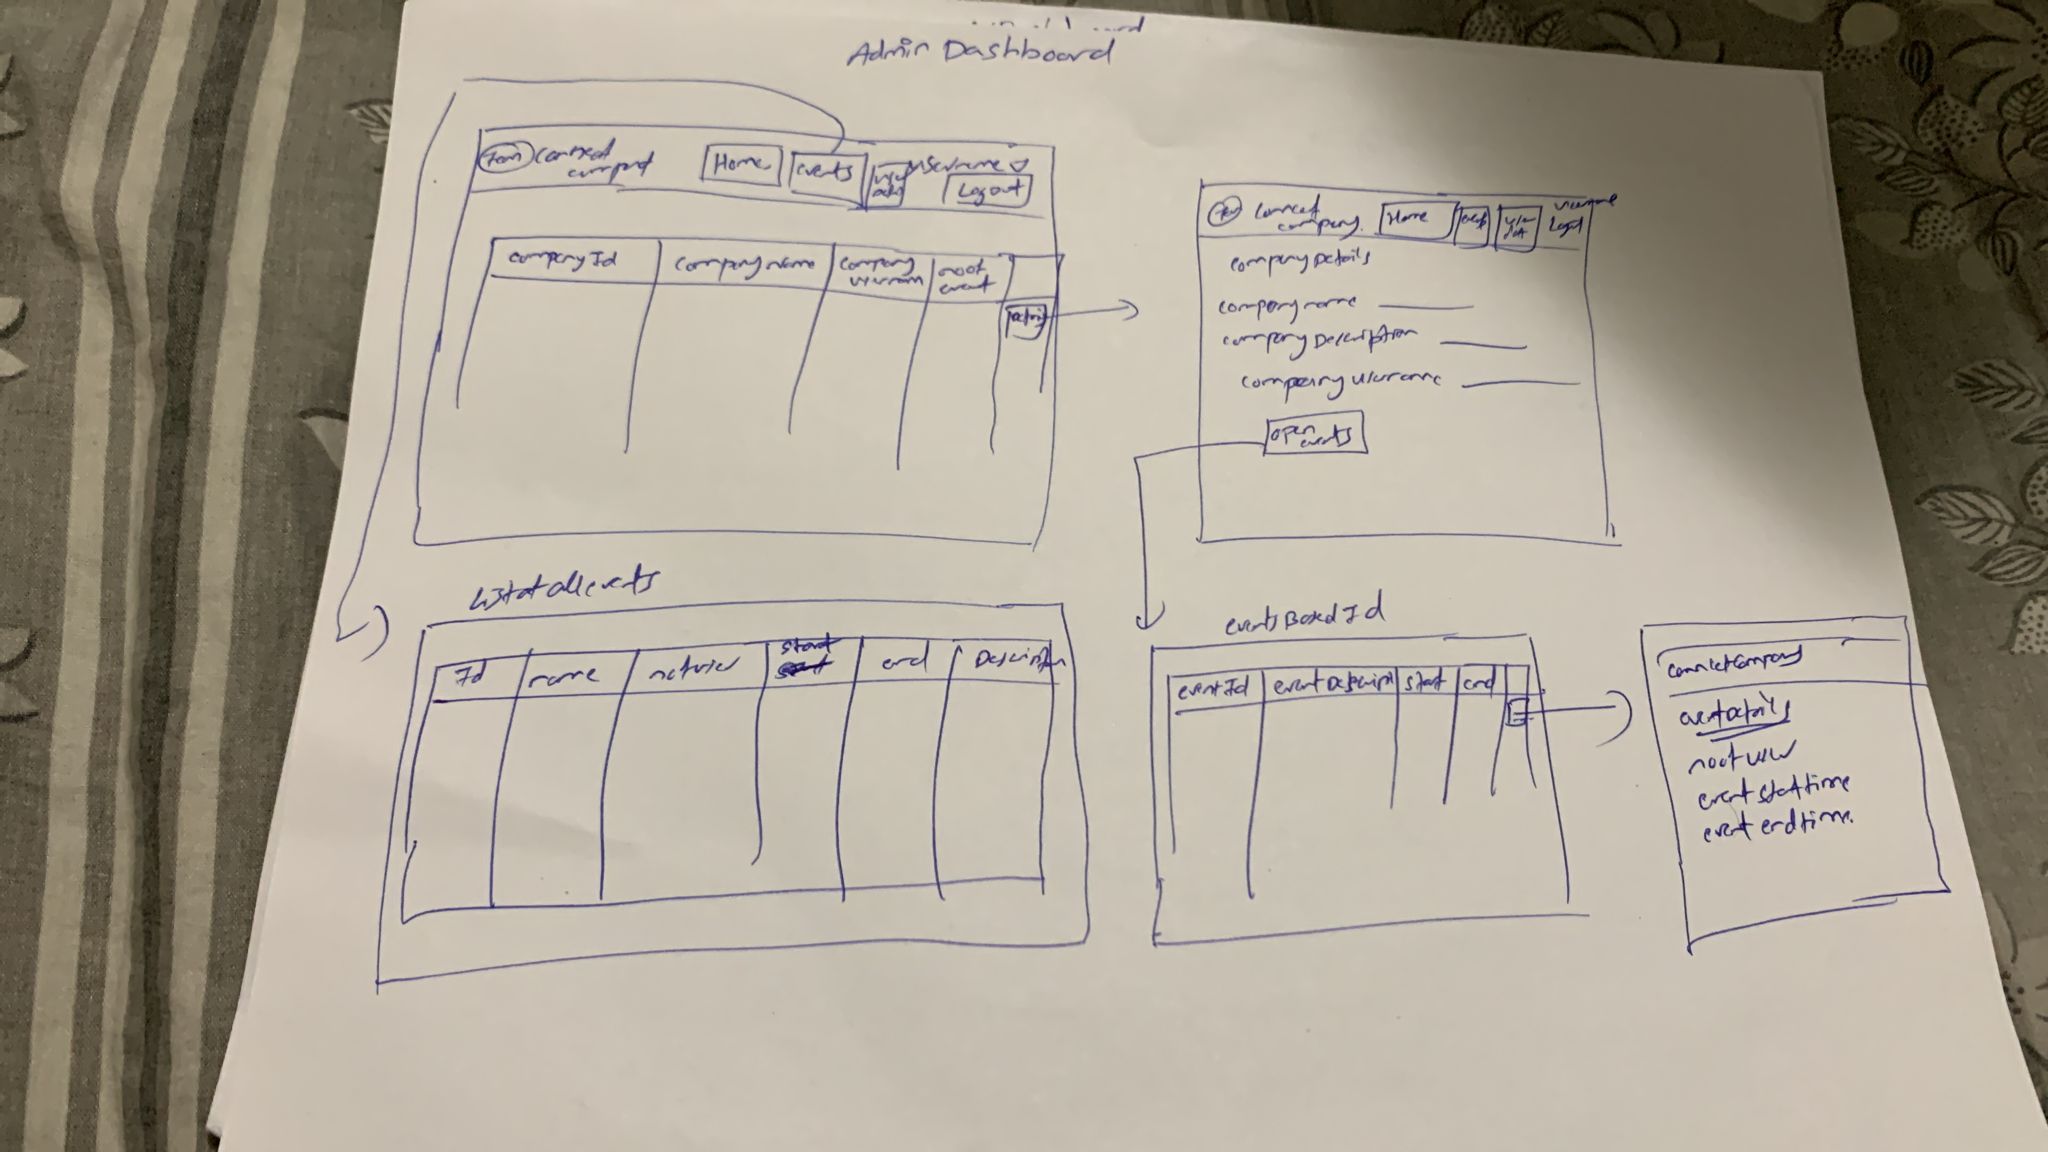 Admin Dashboard
connect
Home
events
username
Logout
company Id
company name
company
event
connect
company
Home
Logout
company Details
company name
company Description
company username
open
events
List of all events
Id
name
start
end
Description
events Based Id
event Id
event Descript
start
end
connect company
event Details
event start time
event end time.